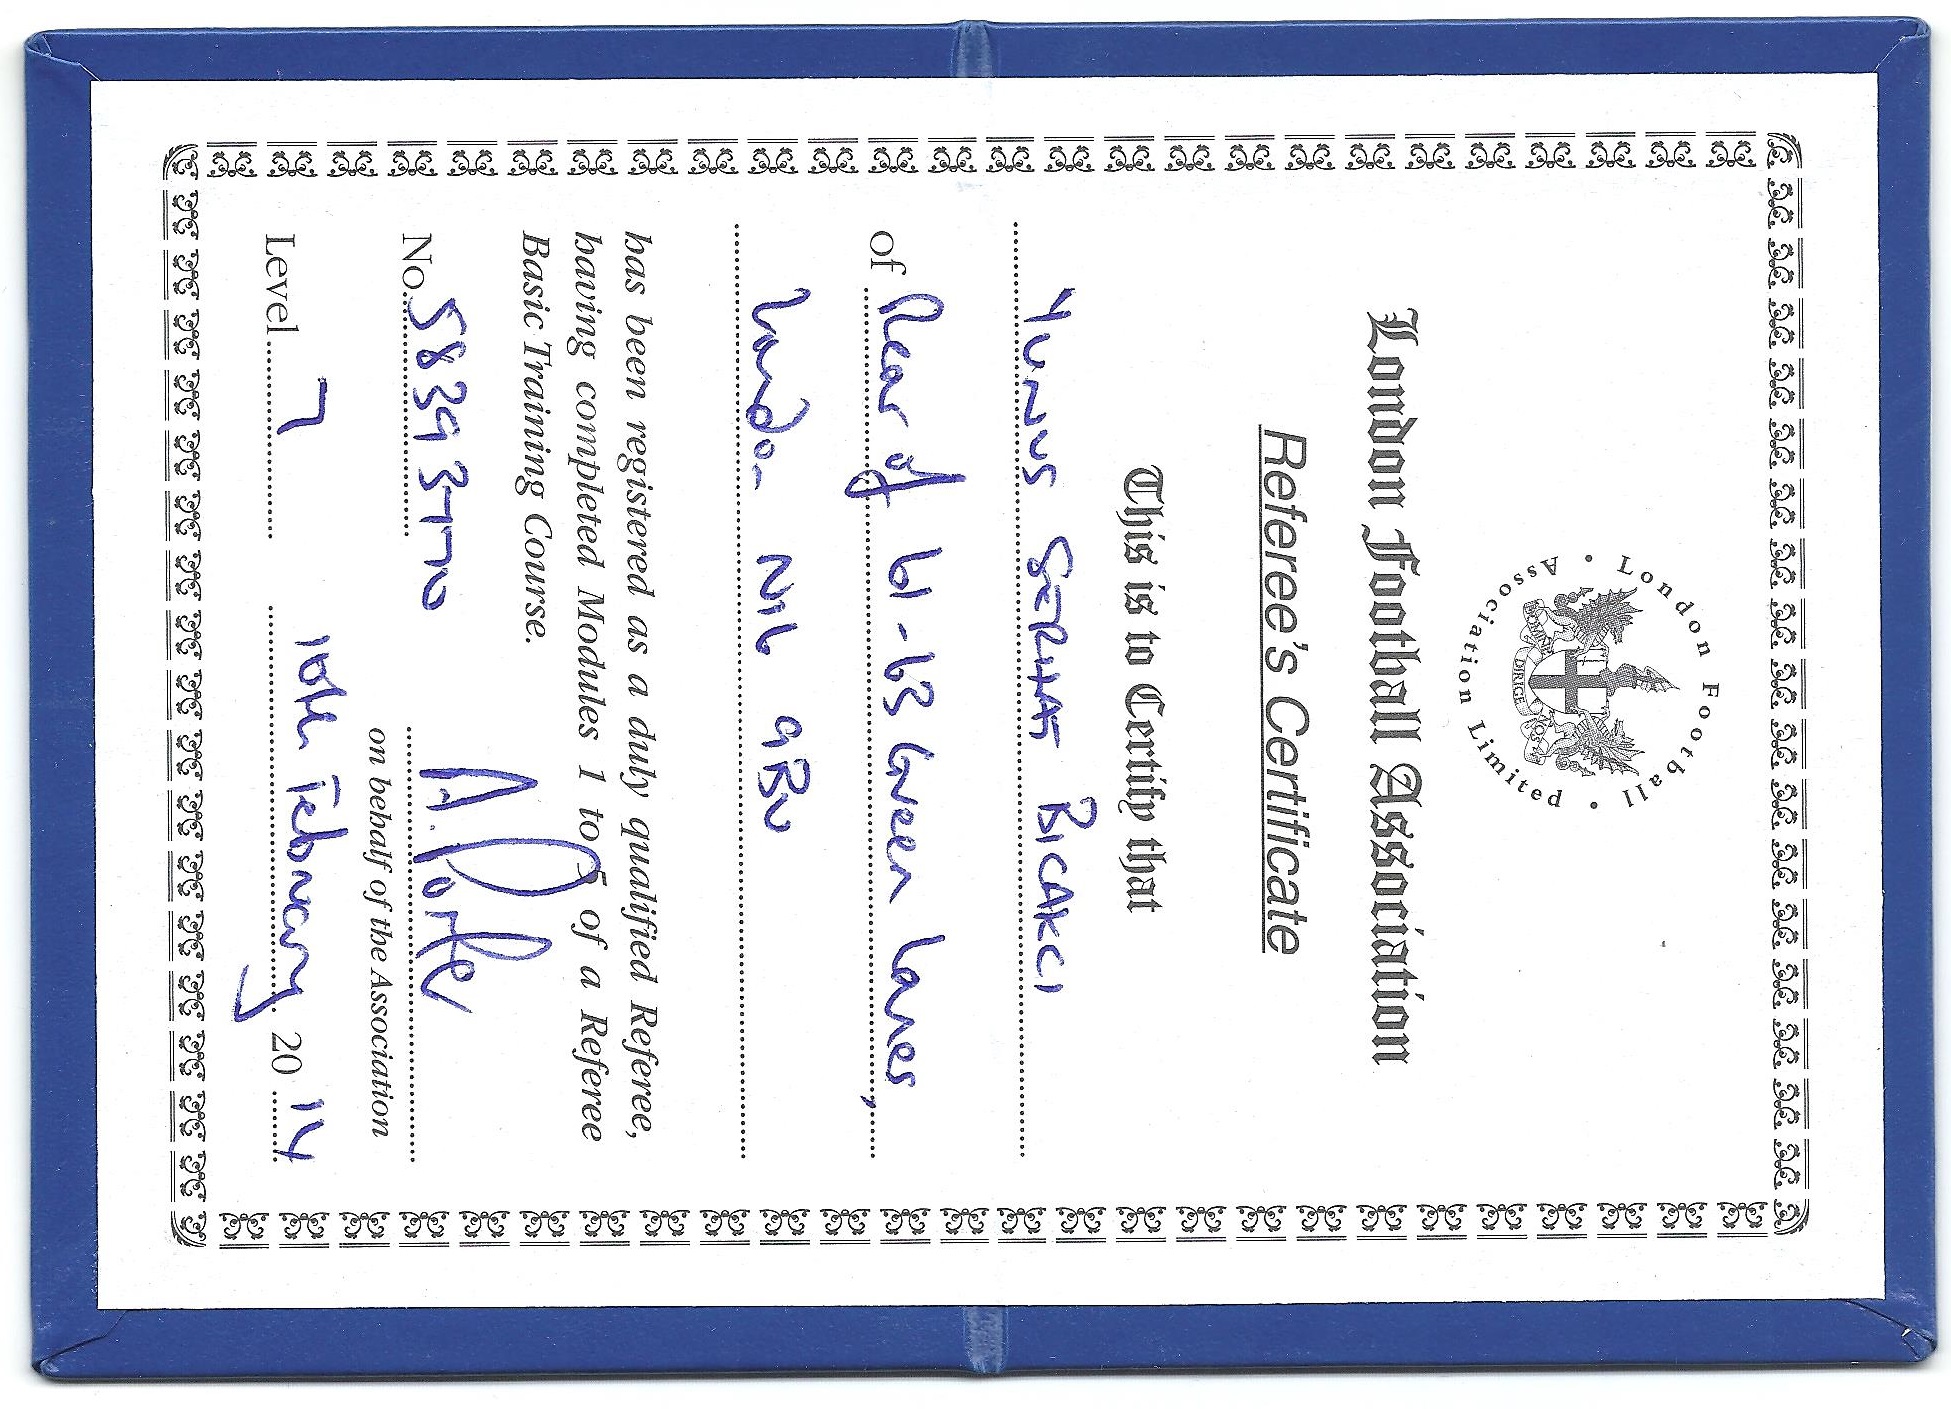 London Football
Association Limited
DOMINE DIRIGE NOS
London Football Association
Referee's Certificate
This is to Certify that
YUNUS SERHAT BICAKCI
of Rear of 61-63 Green Lanes,
London N16 9BU
has been registered as a duly qualified Referee,
having completed Modules 1 to 5 of a Referee
Basic Training Course.
No. 58393770 A. Porter
on behalf of the Association
Level 7 10th February 20 14